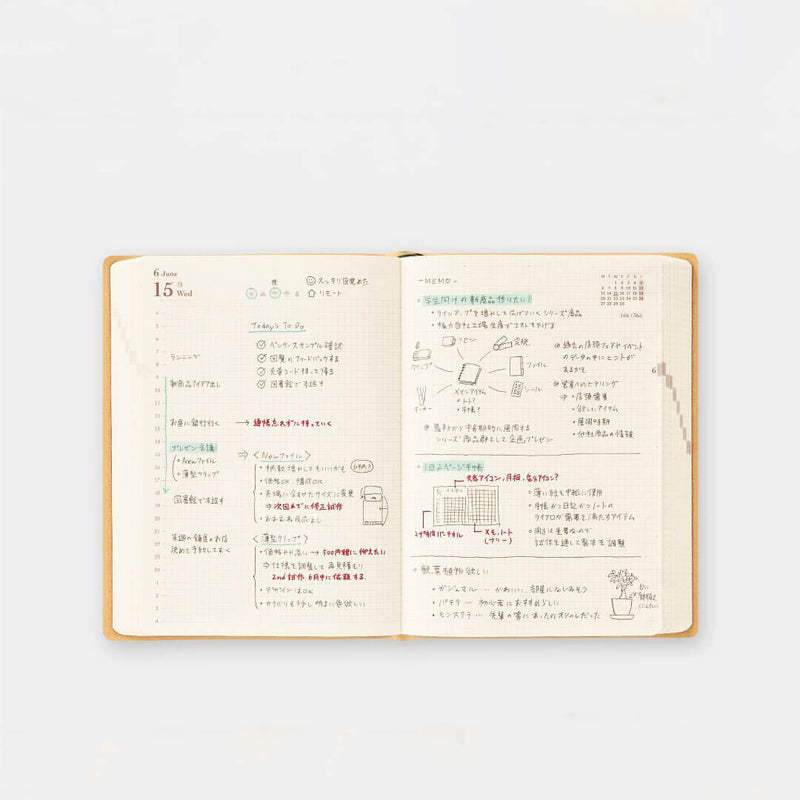 6 June
15 Wed
スッキリ目覚めた
リモート
Today's To Do
ペンケースサンプル確認
回覧のフィードバックする
充電コード持って帰る
図書館で本返す
ランニング
新商品アイデア出し
お昼に銀行行く → 通帳忘れずに持っていく
プレゼン会議
・Newファイル
・薄型クリップ
図書館で本返す
来週の鎌倉のお店
決めて予約しておく
⇒ 〈Newファイル〉
・柄数増やしてもいいかも
・価格OK、構成OK
・売場に合わせたサイズに変更
⇒次回までに修正試作
・おおむね反応よし
〈薄型クリップ〉
・価格やや高い → 500円程に抑えたい
⇒仕様を調整して再見積もり
2nd試作 6月中に依頼する。
・デザインはOK
・もう少し明るい色欲しい
-MEMO-
学生向けの新商品作りたい!
・ラインアップを増やして広げていくシリーズ商品
・極力自社工場生産でコストを下げる
付せん
定規
クリップ
ファイル
シール
マーカー
メインアイテム
・トレー?
・手帳?
過去の店頭フェアやイベント
のデータの中にヒントが
あるかも
営業へのヒアリング
⇒ ・店頭需要
・欲しいアイテム
・展開時期
・他社商品の情報
シリーズ商品群として企画プレゼン
M T W T F S S
166/365
6
1日2ページ手帳
天気アイコン、月相、気分アイコン?
24時間バーチカル
メモ、ノート
(フリー)
・薄い紙を中紙に使用
・手帳かつ日記かつノートの
ライフログ需要を満たすアイテム
・開きは重要なので
試作を通して製本を調整
観葉植物欲しい
・ガジュマル … かわいい、部屋にないみどり
・パキラ … 初心者におすすめらしい
・モンステラ … 先輩の家にあったのオシャレだった